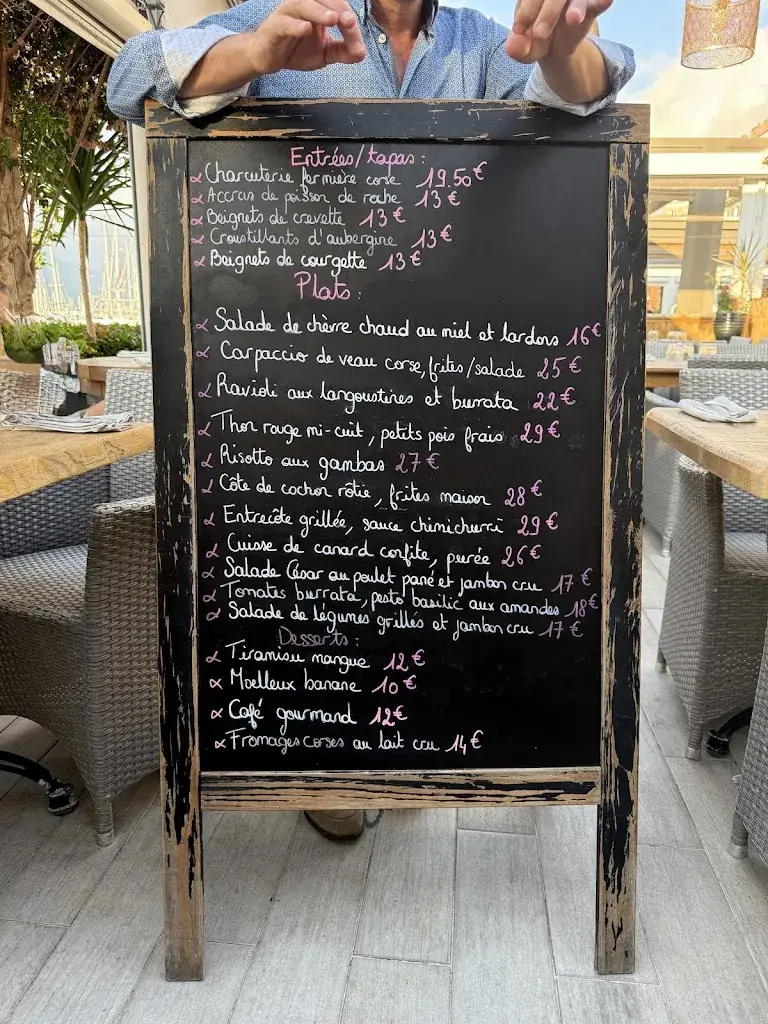 Entrées/tapas :
Charcuterie fermière corse 19.50€
Accras de poisson de roche 13€
Beignets de crevette 13€
Croustillants d'aubergine 13€
Beignets de courgette 13€
Plats :
Salade de chèvre chaud au miel et lardons 16€
Carpaccio de veau corse, frites/salade 25€
Ravioli aux langoustines et burrata 22€
Thon rouge mi-cuit, petits pois frais 29€
Risotto aux gambas 27€
Côte de cochon rôtie, frites maison 28€
Entrecôte grillée, sauce chimichurri 29€
Cuisse de canard confite, purée 26€
Salade César au poulet pané et jambon cru 17€
Tomates burrata, pesto basilic aux amandes 18€
Salade de légumes grillés et jambon cru 17€
Desserts :
Tiramisu mangue 12€
Moelleux banane 10€
Café gourmand 12€
Fromages corses au lait cru 14€